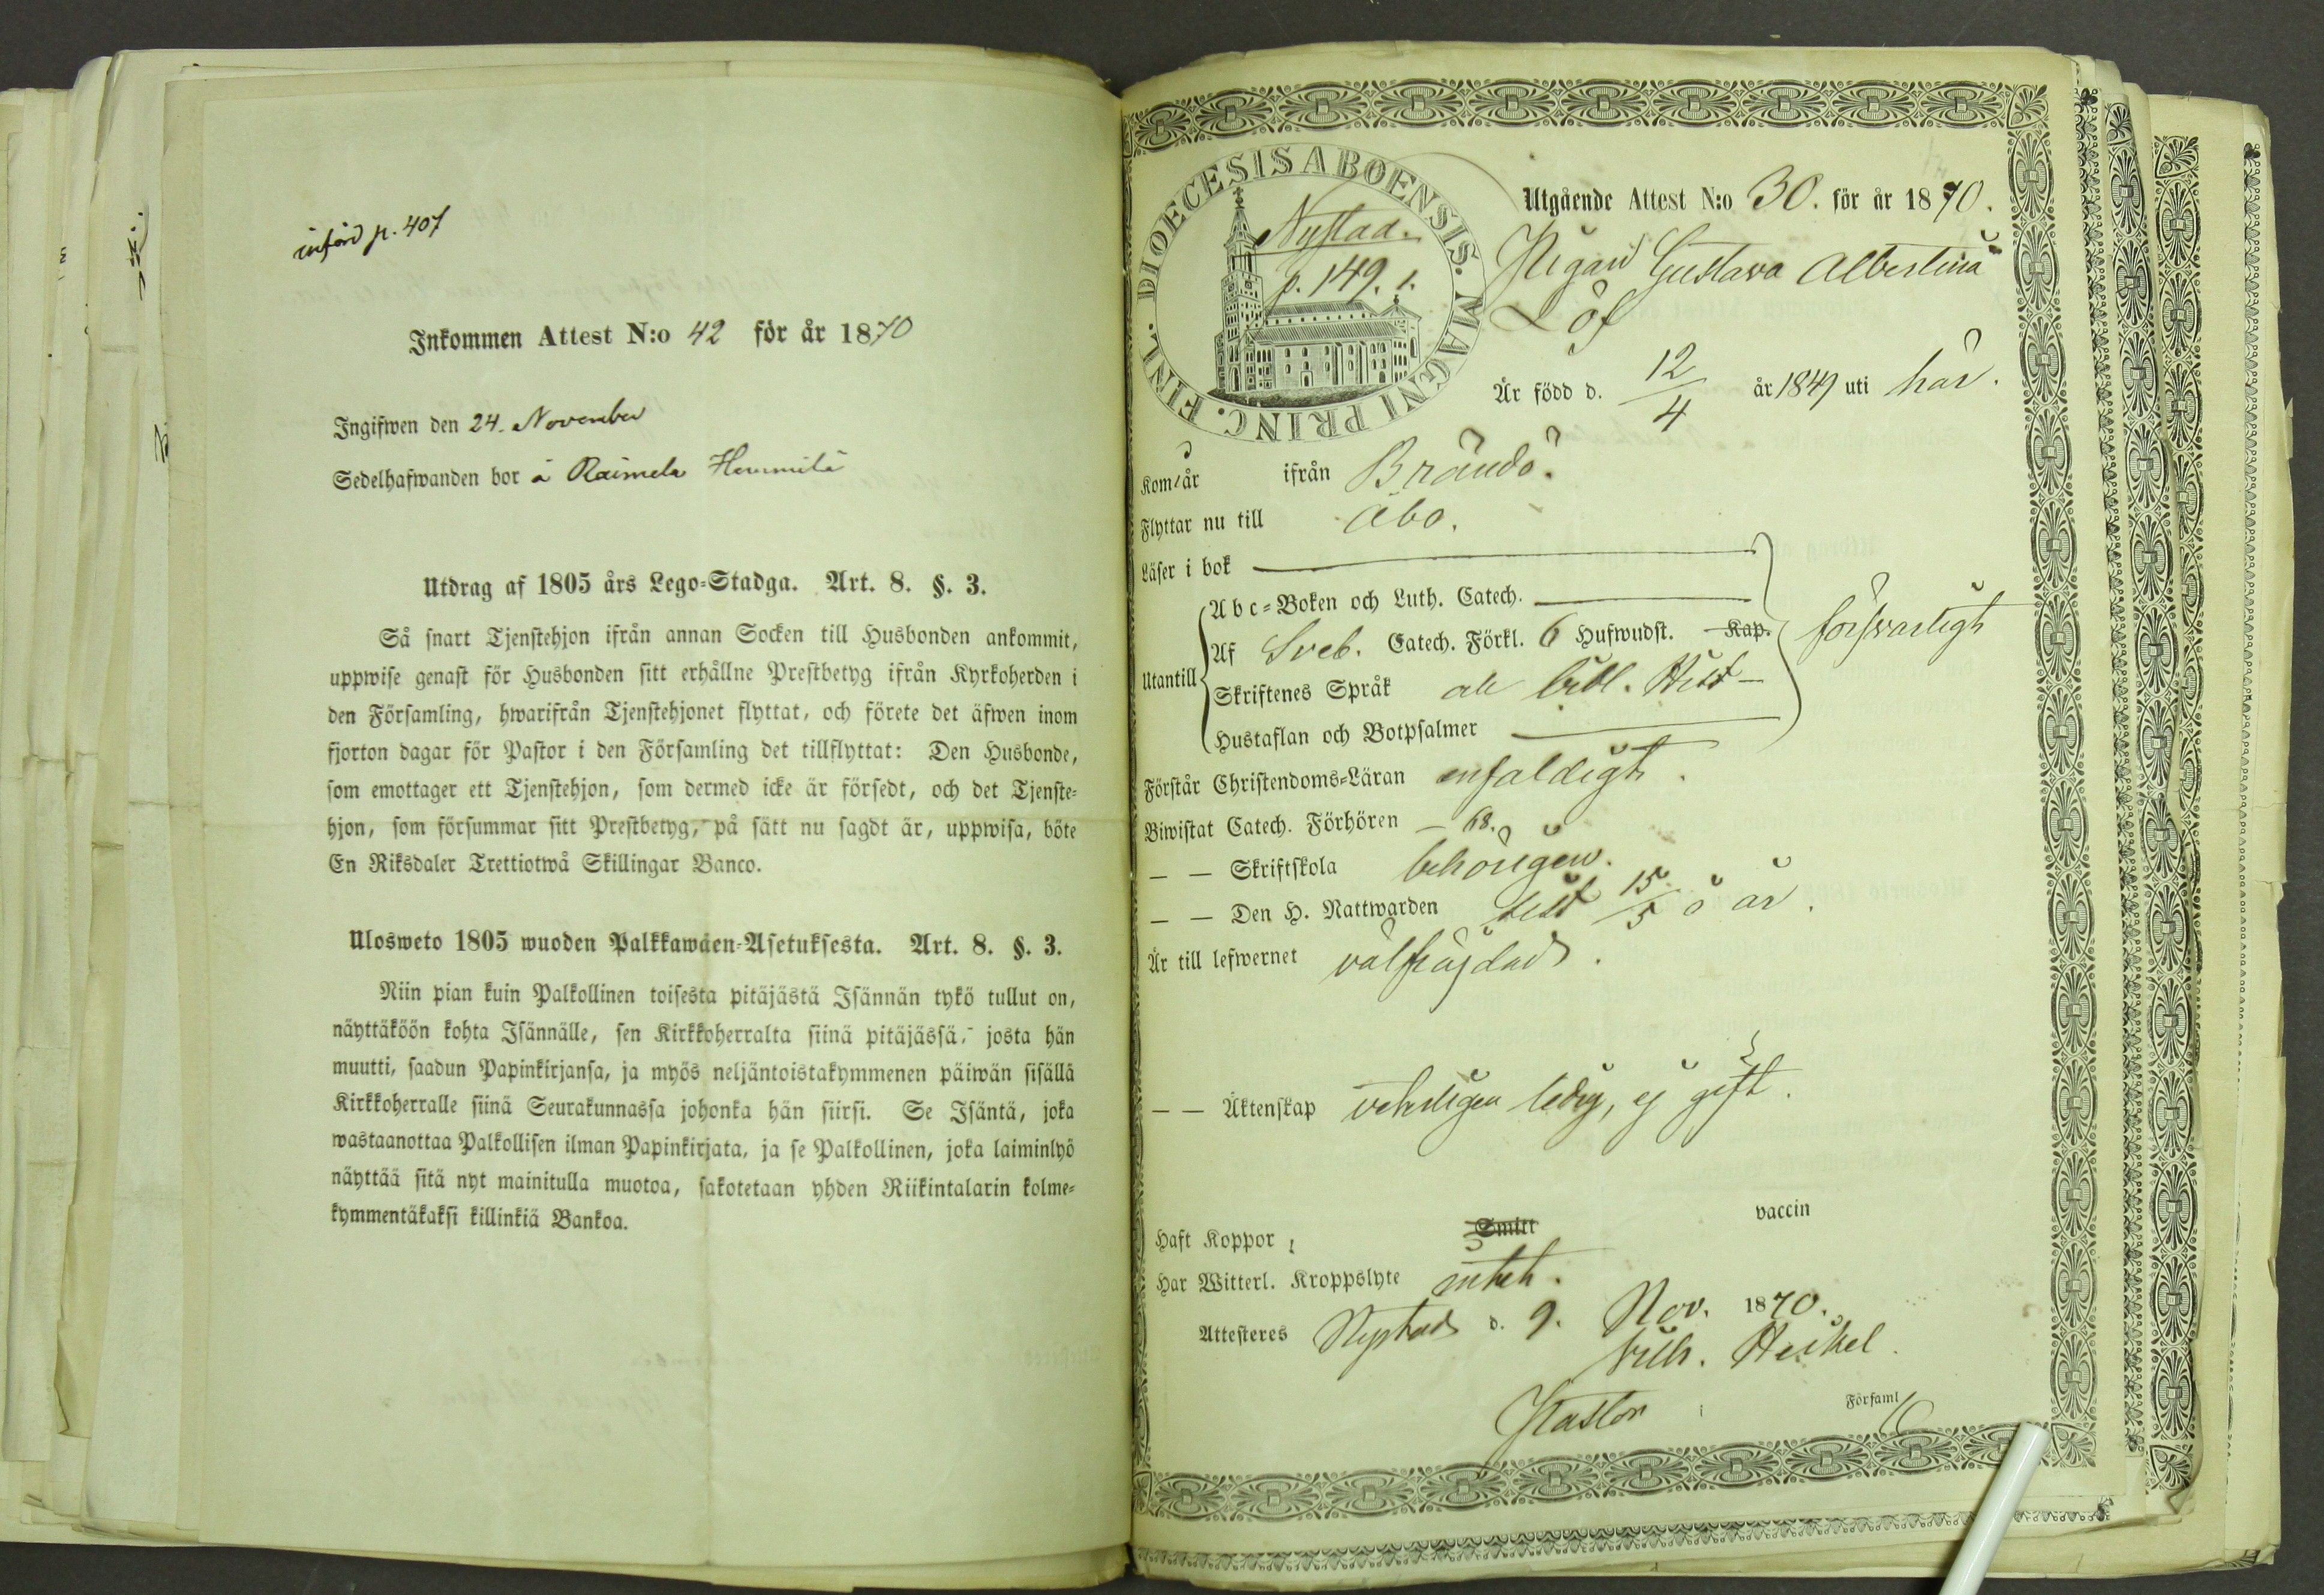 införd p. 407
Inkommen Attest N:o 42 för år 1870
Ingifwen den 24. November
Sedelhafwanden bor å Raimela Hemmilä
Utdrag af 1805 års Lego-Stadga. Art. 8. §. 3.
Så snart Tjenstehjon ifrån annan Socken till Husbonden ankommit,
uppwise genast för Husbonden sitt erhållne Prestbetyg ifrån Kyrkoherden i
den Församling, hwarifrån Tjenstehjonet flyttat, och förete det äfwen inom
fjorton dagar för Pastor i den Församling det tillflyttat: Den Husbonde,
som emottager ett Tjenstehjon, som dermed icke är försedt, och det Tjenste-
hjon, som försummar sitt Prestbetyg, på sätt nu sagdt är, uppwisa, böte
En Riksdaler Trettiotwå Skillingar Banco.
Ulosweto 1805 wuoden Palkkawäen-Asetuksesta. Art. 8. §. 3.
Niin pian kuin Palkollinen toisesta pitäjästä Isännän tykö tullut on,
näyttäköön kohta Isännälle, sen Kirkkoherralta siinä pitäjässä, josta hän
muutti, saadun Papinkirjansa, ja myös neljäntoistakymmenen päiwän sisällä
Kirkkoherralle siinä Seurakunnassa johonka hän siirsi. Se Isäntä, joka
wastaanottaa Palkollisen ilman Papinkirjata, ja se Palkollinen, joka laiminlyö
näyttää sitä nyt mainitulla muotoa, sakotetaan yhden Riikintalarin kolme-
kymmentäkaksi killinkiä Bankoa.
DIOECESIS ABOENSIS. MAGNI PRINC. FINL.
Nystad.
p. 149. 1.
Utgående Attest N:o 30. för år 1870.
Pigan Gustava Albertina
Löf
Är född d. 12/4 år 1849 uti här.
Kom år ifrån Brändö.
Flyttar nu till Åbo.
Läser i bok
Utantill
Abc-Boken och Luth. Catech.
Af Sveb. Catech. Förkl. 6 Hufwudst. Kap. försvarligt
Skriftenes Språk bibl. Hist
Hustaflan och Botpsalmer
Förstår Christendoms-Läran enfaldigt.
Biwistat Catech. Förhören – 68.
– – Skriftskola behörigen.
– – Den H. Nattwarden sist 15/5 i år.
Är till lefwernet välfräjdad.
– – Äktenskap veterligen ledig, ej gift.
Haft Koppor Smitt vaccin
Har Witterl. Kroppslyte intet.
Attesteres Nystad d. 9. Nov. 1870.
Vilh. Heikel
Pastor i Församl